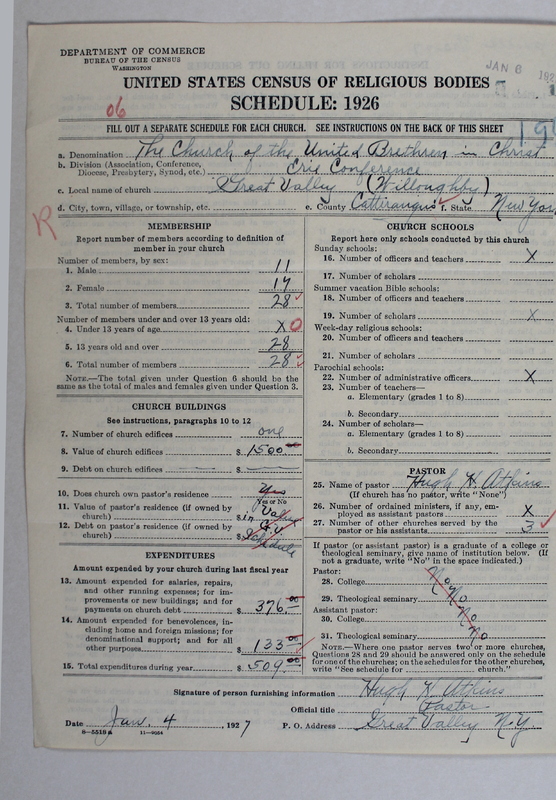 DEPARTMENT OF COMMERCE
BUREAU OF THE CENSUS
WASHINGTON
JAN 6 192
UNITED STATES CENSUS OF RELIGIOUS BODIES
SCHEDULE: 1926
06
FILL OUT A SEPARATE SCHEDULE FOR EACH CHURCH. SEE INSTRUCTIONS ON THE BACK OF THIS SHEET
a. Denomination The Church of the United Brethren in Christ
b. Division (Association, Conference, Diocese, Presbytery, Synod, etc.) Erie Conference
c. Local name of church Great Valley (Willoughby)
d. City, town, village, or township, etc. e. County Cattaraugus f. State New York
R
MEMBERSHIP
Report number of members according to definition of member in your church
Number of members, by sex:
1. Male 11
2. Female 17
3. Total number of members 28
Number of members under and over 13 years old:
4. Under 13 years of age X 0
5. 13 years old and over 28
6. Total number of members 28
NOTE.—The total given under Question 6 should be the same as the total of males and females given under Question 3.
CHURCH BUILDINGS
See instructions, paragraphs 10 to 12
7. Number of church edifices one
8. Value of church edifices $ 1500 00
9. Debt on church edifices $
10. Does church own pastor's residence Yes
Yes or No
11. Value of pastor's residence (if owned by church) $ in Valley
12. Debt on pastor's residence (if owned by church) $ Schedule
EXPENDITURES
Amount expended by your church during last fiscal year
13. Amount expended for salaries, repairs, and other running expenses; for improvements or new buildings; and for payments on church debt $ 376 00
14. Amount expended for benevolences, including home and foreign missions; for denominational support; and for all other purposes $ 133 00
15. Total expenditures during year $ 509 00
CHURCH SCHOOLS
Report here only schools conducted by this church
Sunday schools:
16. Number of officers and teachers X
17. Number of scholars
Summer vacation Bible schools:
18. Number of officers and teachers
19. Number of scholars X
Week-day religious schools:
20. Number of officers and teachers
21. Number of scholars
Parochial schools:
22. Number of administrative officers X
23. Number of teachers—
a. Elementary (grades 1 to 8)
b. Secondary
24. Number of scholars—
a. Elementary (grades 1 to 8)
b. Secondary
PASTOR
25. Name of pastor Hugh H. Atkins
(If church has no pastor, write "None")
26. Number of ordained ministers, if any, employed as assistant pastors X
27. Number of other churches served by the pastor or his assistants 3
If pastor (or assistant pastor) is a graduate of a college or theological seminary, give name of institution below. (If not a graduate, write "No" in the space indicated.)
Pastor:
28. College No
29. Theological seminary No
Assistant pastor:
30. College No
31. Theological seminary No
NOTE.—Where one pastor serves two or more churches, Questions 28 and 29 should be answered only on the schedule for one of the churches; on the schedules for the other churches, write "See schedule for church."
Signature of person furnishing information Hugh H Atkins
Official title Pastor
Date Jan. 4, 1927 P. O. Address Great Valley N.Y.
8—5518a 11—9064